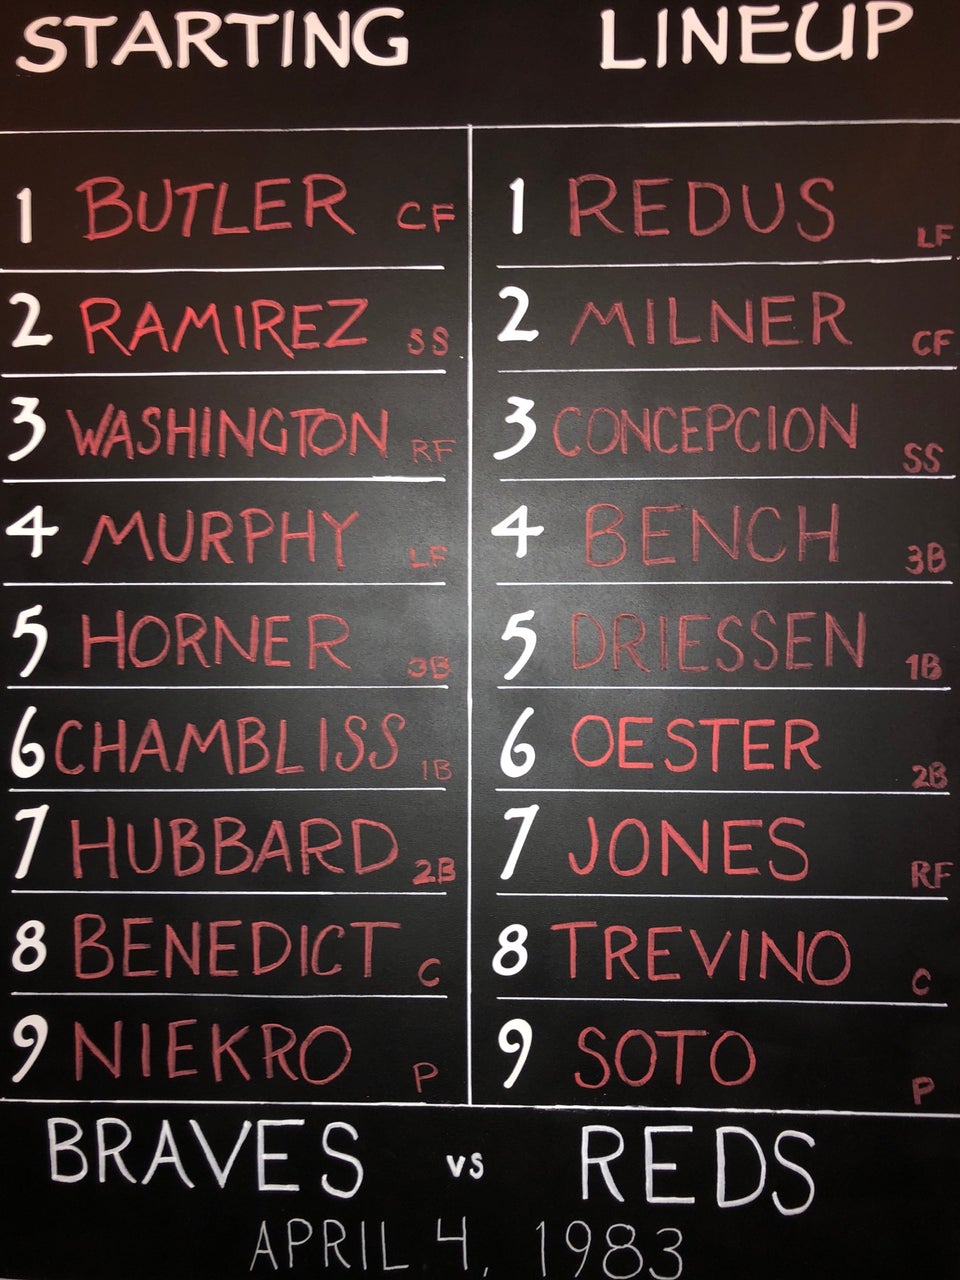 STARTING LINEUP
1 BUTLER CF
2 RAMIREZ SS
3 WASHINGTON RF
4 MURPHY LF
5 HORNER 3B
6 CHAMBLISS 1B
7 HUBBARD 2B
8 BENEDICT C
9 NIEKRO P
1 REDUS LF
2 MILNER CF
3 CONCEPCION SS
4 BENCH 3B
5 DRIESSEN 1B
6 OESTER 2B
7 JONES RF
8 TREVINO C
9 SOTO P
BRAVES vs REDS
APRIL 4, 1983